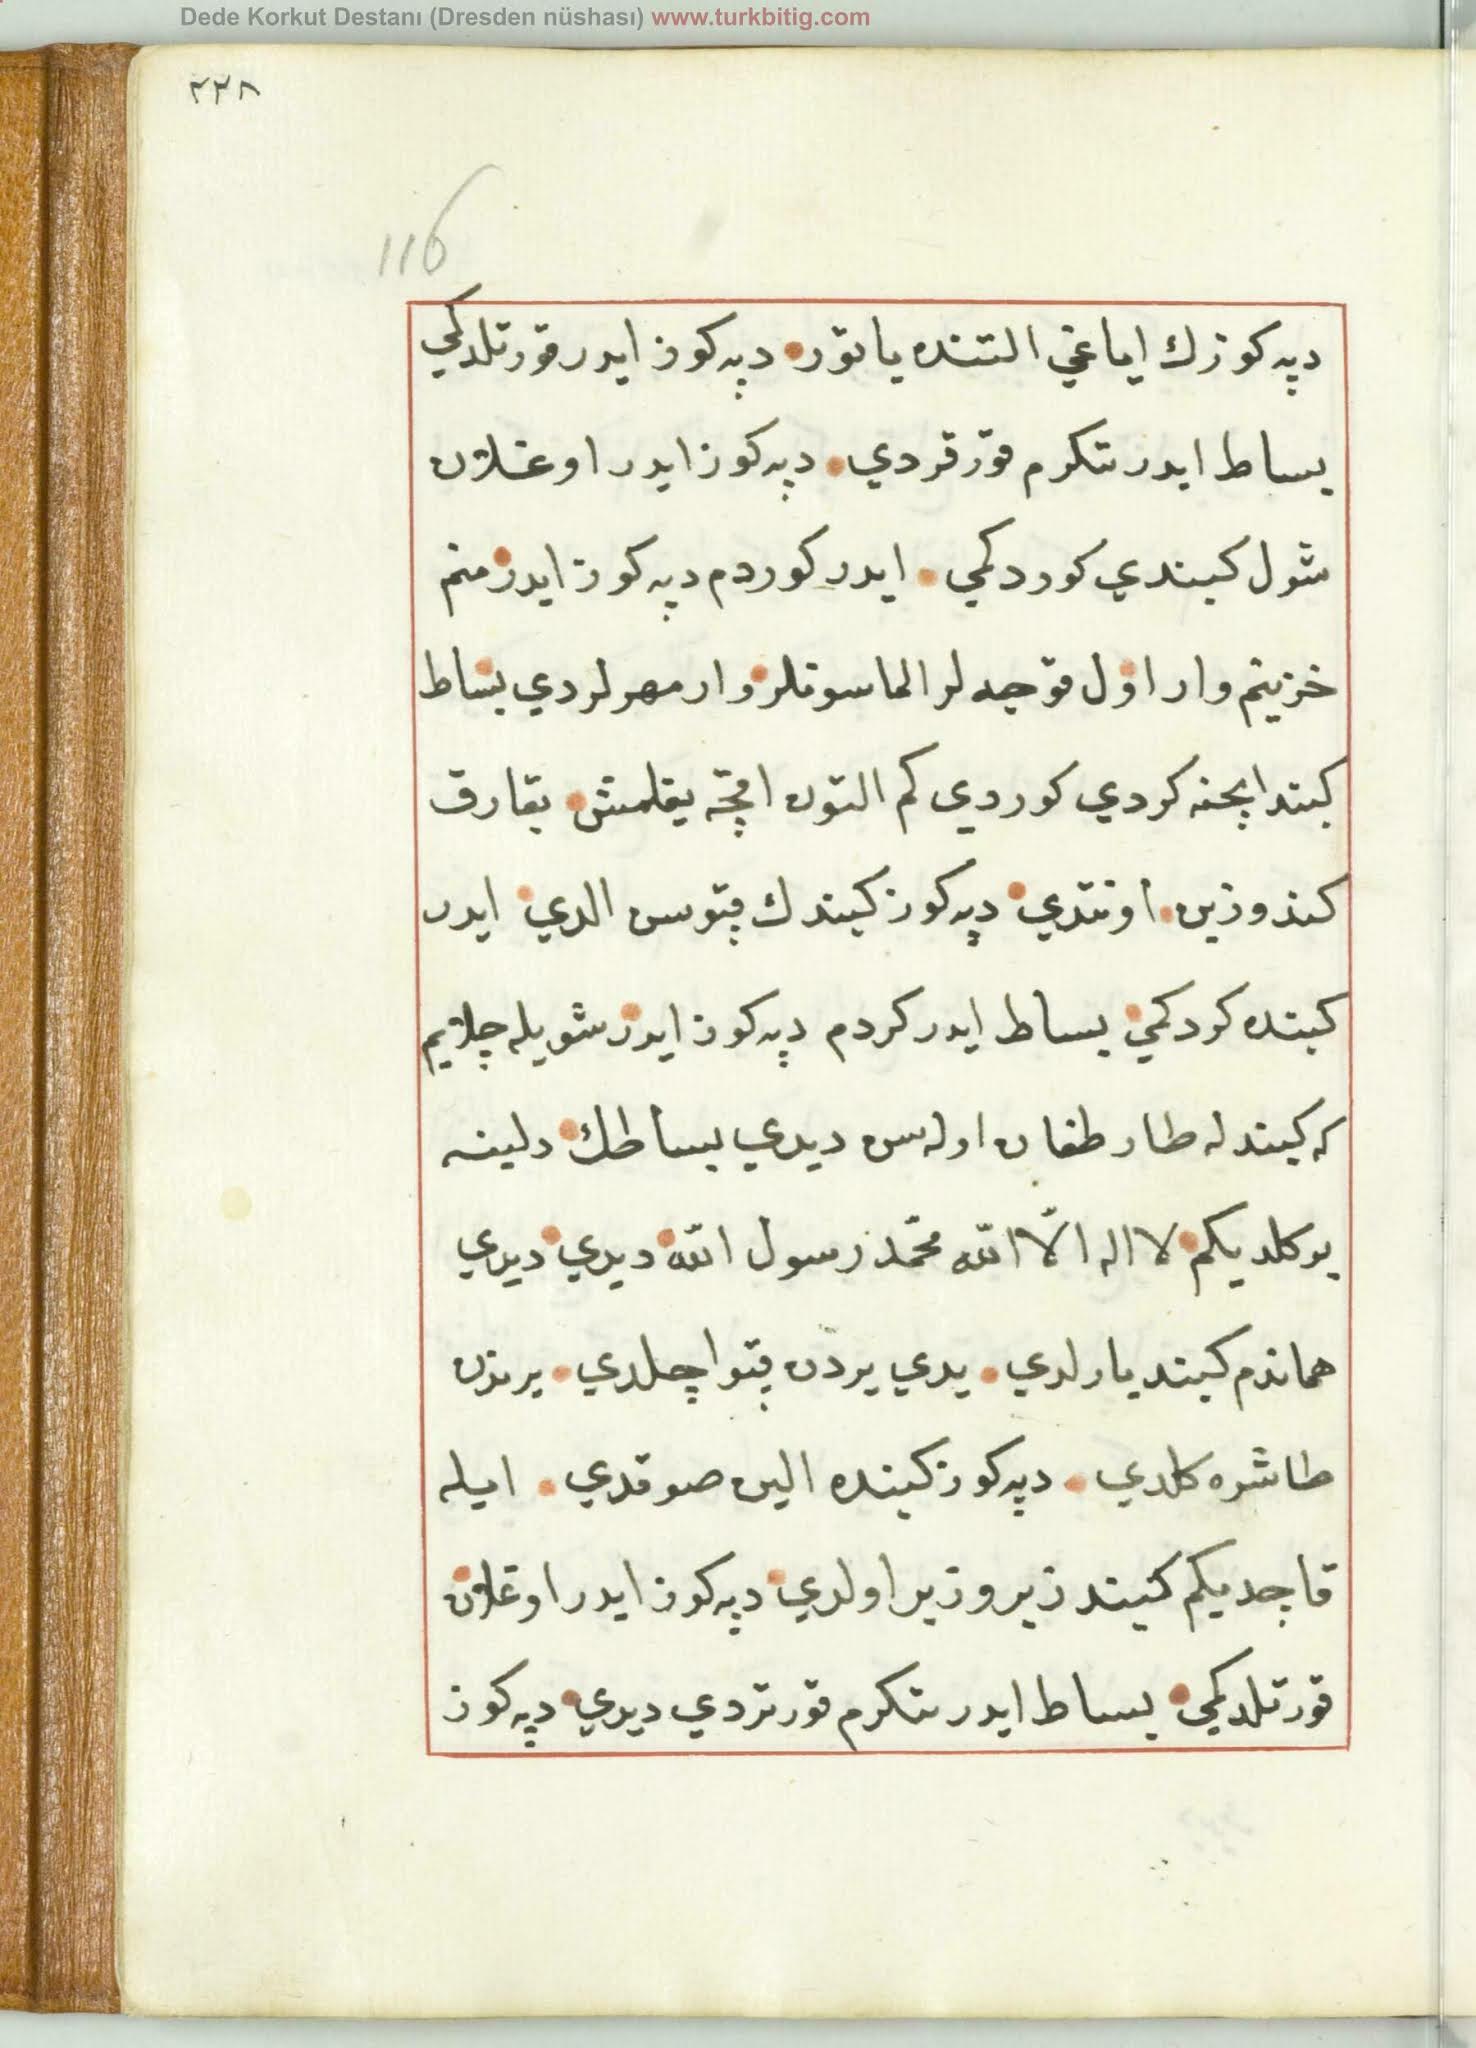 Dede Korkut Destanı (Dresden nüshası) www.turkbitig.com
٢٣٨
116
دپه كوزك اياغي التنده ياتور دپه كوز ايدر قورتلدكمي
بساط ايدر تنكرم قورتردي دپه كوز ايدر اوغلان
شول كبندي كوردكمي ايدر كوردم دپه كوز ايدر منم
خزينم وار اول قوجه لر الماسونلر وار مهرلردي بساط
كبند ايچنه كردي كوردي كم التون اقچه يغلمش بقارق
كندوزين اونتدي دپه كوز كبندك قپوسن الدي ايدر
كبنده كردكمي بساط ايدر كردم دپه كوز ايدر شويله چلايم
كه كبندله طار طغان اوله سن ديدي بساطك دلينه
بو كلديكم لا اله الّا الله محمّد رسول الله ديدي ديدي
هماندم كبند يارلدي يدي يردن قپو اچلدي برندن
طاشره كلدي دپه كوز كبنده الين صوقدي ايله
قاچديكم كنبد زير وزبر اولدي دپه كوز ايدر اوغلان
قورتلدكمي بساط ايدر تنكرم قورتردي ديدي دپه كوز